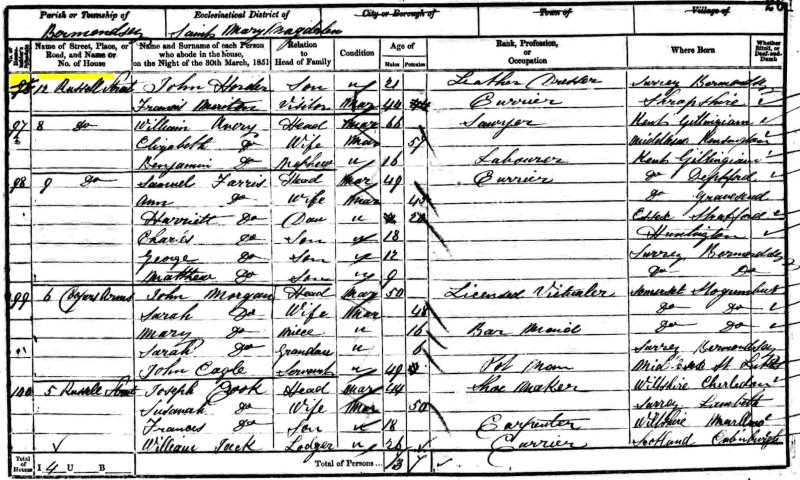 Parish or Township of Ecclesiastical District of City or Borough of Town of Village of
Bermondsey Saint Mary Magdalen
Name of Street, Place, or Road, and Name or No. of House
Name and Surname of each Person who abode in the house, on the Night of the 30th March, 1851
Relation to Head of Family
Condition
Age of
Males Females
Rank, Profession, or Occupation
Where Born
Whether Blind, or Deaf-and-Dumb
12 Russell Street John Son u 21 Leather Dresser Surrey Bermondsey
Francis Visitor Mar 44 Currier Shropshire
97 8 do William Avery Head Mar 66 Sawyer Kent Gillingham
Elizabeth do Wife Mar 59 Middlesex
Benjamin do Nephew u 16 Labourer Kent Gillingham
98 9 do Samuel Farris Head Mar 49 Currier do Deptford
Ann do Wife Mar do Gravesend
Harriett do Dau u Essex Stratford
Charles do Son u 18
George do Son u 12 Surrey Bermondsey
Matthew do Son u 9 do do
99 6 Arms John Morgan Head Mar 50 Licensed Victualer Somerset
Sarah do Wife Mar 48 do do
Mary do Niece u 16 Bar Maid do do
Sarah do u 6 Surrey Bermondsey
John Cagle Servant u 49 Pot Man St Luke
100 5 Russell Street Joseph Cook Head Mar Shoe Maker Wiltshire
Susanah do Wife Mar 50 Surrey Lambeth
Francis do Son u 18 Carpenter Wiltshire
William Jack Lodger u 26 Currier Scotland
Total of Houses I 4 U B Total of Persons 13 7